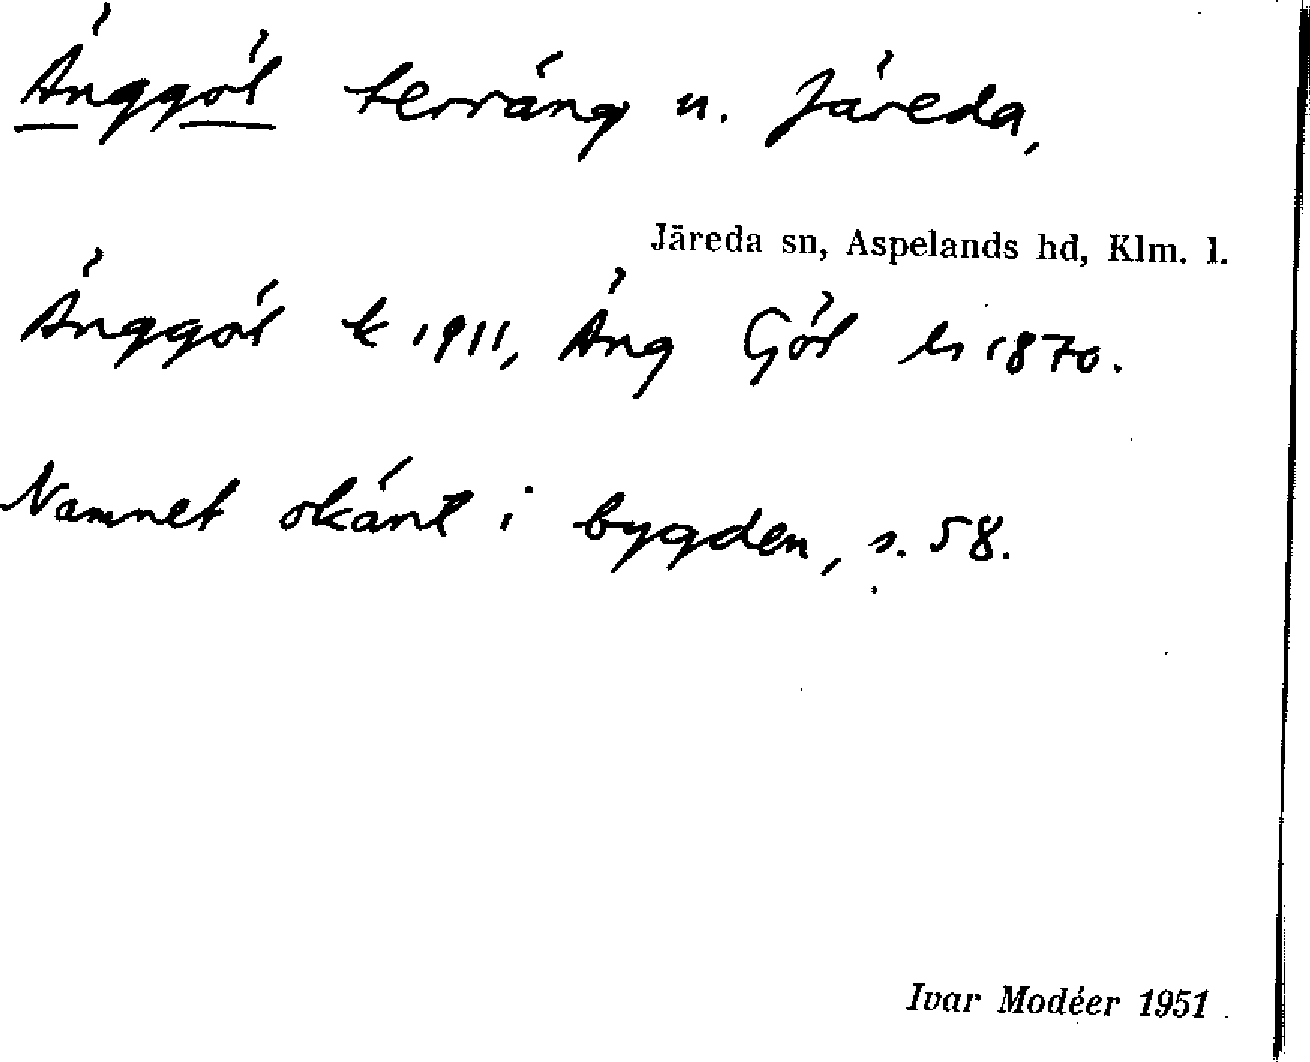 Änggöl terräng u. Järeda,
Järeda sn, Aspelands hd, Klm. l.
Änggöl k 1911, Äng Göl ls 1870.
Namnet okänt i bygden, s. 58.
Ivar Modéer 1951